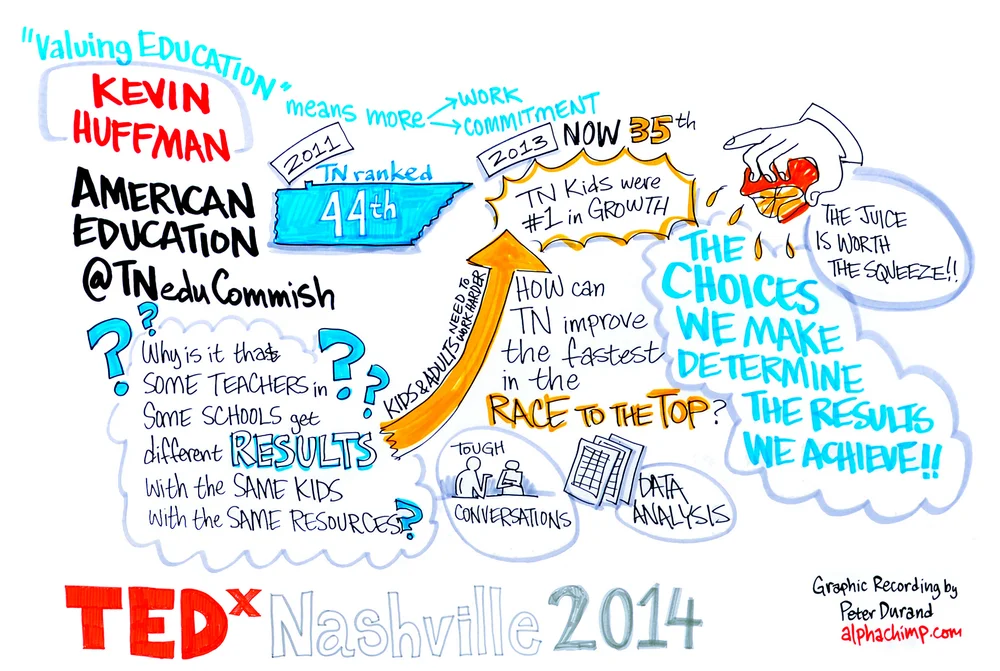 "Valuing EDUCATION"
means more
→WORK
→COMMITMENT
KEVIN
HUFFMAN
AMERICAN
EDUCATION
@TNeduCommish
2011
TN ranked
44th
2013
NOW 35th
TN Kids were
#1 in GROWTH
KIDS & ADULTS NEED TO
WORK HARDER
Why is it that
SOME TEACHERS in
SOME SCHOOLS get
different RESULTS
with the SAME KIDS
with the SAME RESOURCES?
HOW can
TN improve
the fastest
in the
RACE TO THE TOP?
TOUGH
CONVERSATIONS
DATA
ANALYSIS
THE JUICE
IS WORTH
THE SQUEEZE!!
THE
CHOICES
WE MAKE
DETERMINE
THE RESULTS
WE ACHIEVE!!
TEDx Nashville 2014
Graphic Recording by
Peter Durand
alphachimp.com